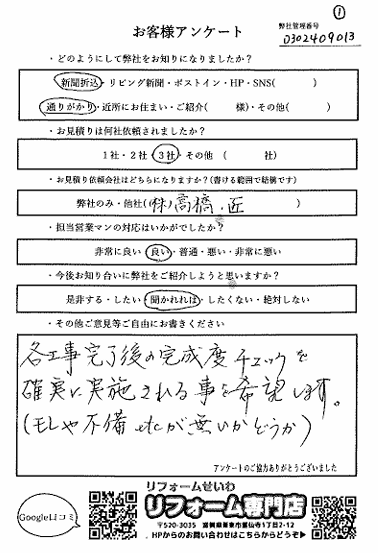 ①
お客様アンケート
弊社管理番号
0302409013
・どのようにして弊社をお知りになりましたか？
新聞折込・リビング新聞・ポストイン・HP・SNS(　　　)
通りがかり・近所にお住まい・ご紹介(　　様)・その他(　　　)
・お見積りは何社依頼されましたか？
1社・2社・3社・その他　(　　社)
・お見積り依頼会社はどちらになりますか？(書ける範囲で結構です)
弊社のみ・他社((株)高橋.匠
・担当営業マンの対応はいかがでしたか？
非常に良い・良い・普通・悪い・非常に悪い
・今後お知り合いに弊社をご紹介しようと思いますか？
是非する・したい・聞かれれば・したくない・絶対しない
・その他ご意見等ご自由にお書きください
各工事完了後の完成度チェックを
確実に実施される事を希望します。
(モレや不備etcが無いかどうか)
アンケートのご協力ありがとうございました
Google口コミ
リフォームせいわ
リフォーム専門店
〒520-3035 滋賀県栗東市霊仙寺1丁目2-12
HPからのお問い合わせはこちらからどうぞ▶